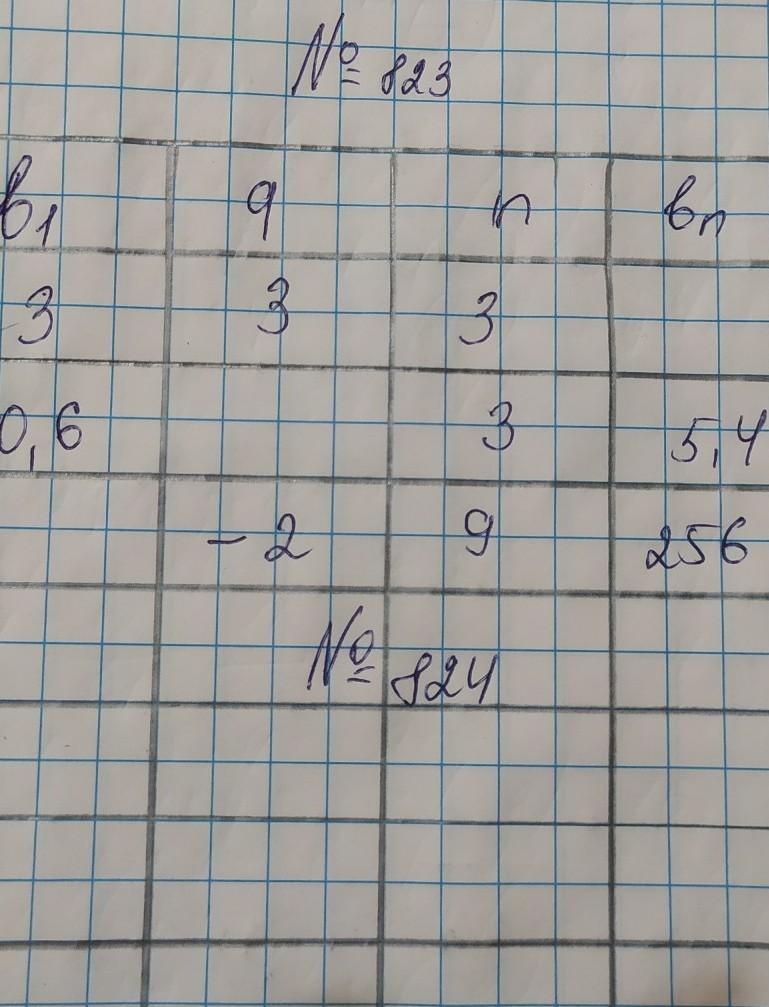 № 823
b₁ q n bₙ
3 3 3
0,6 3 5,4
- 2 9 256
№ 824